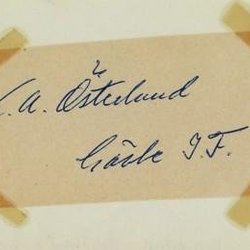 . A. Österlund
Gävle I.F.